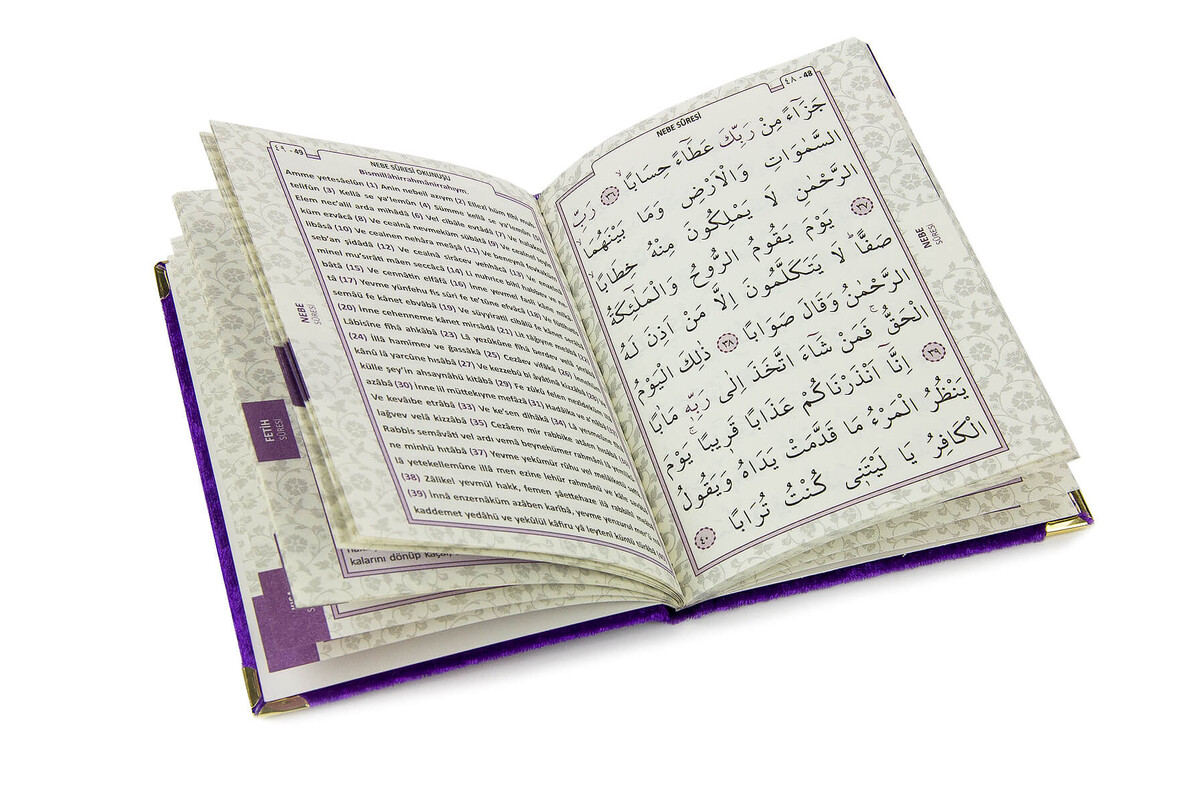 ٤٨ - 48
NEBE SÛRESİ
جَزَٓاءً مِنْ رَبِّكَ عَطَٓاءً حِسَابًاۙ ﴿٣٦﴾ رَبِّ
السَّمٰوَاتِ وَالْاَرْضِ وَمَا بَيْنَهُمَا
الرَّحْمٰنِ لَا يَمْلِكُونَ مِنْهُ خِطَابًاۚ ﴿٣٧﴾
يَوْمَ يَقُومُ الرُّوحُ وَالْمَلٰٓئِكَةُ
صَفًّاۜ لَا يَتَكَلَّمُونَ اِلَّا مَنْ اَذِنَ لَهُ
الرَّحْمٰنُ وَقَالَ صَوَابًا ﴿٣٨﴾ ذٰلِكَ الْيَوْمُ
الْحَقُّۚ فَمَنْ شَٓاءَ اتَّخَذَ اِلٰى رَبِّهٖ مَاٰبًا ﴿٣٩﴾
اِنَّٓا اَنْذَرْنَاكُمْ عَذَابًا قَرٖيبًاۚ يَوْمَ
يَنْظُرُ الْمَرْءُ مَا قَدَّمَتْ يَدَاهُ وَيَقُولُ
الْكَافِرُ يَا لَيْتَنٖي كُنْتُ تُرَابًا ﴿٤٠﴾
NEBE
SÛRESİ
٤٩ - 49
NEBE SÛRESİ OKUNUŞU
Bismillâhirrahmânirrahıym.
Amme yetesâelûn (1) Anin nebeil azıym (2) Ellezî hüm fîhi muh
telifûn (3) Kellâ se ya'lemûn (4) Sümme kellâ se ya'lemûn
Elem nec'alil arda mihâdâ (6) Vel cibâle evtâdâ (7) Ve halakna
küm ezvâcâ (8) Ve cealnâ nevmeküm sübâtâ (9) Ve cealnel leyle
libâsâ (10) Ve cealnen nehâra meâşâ (11) Ve beneynâ fevkaküm
seb'an şidâdâ (12) Ve cealnâ sirâcev vehhâcâ (13) Ve enzelnâ
minel mu'sırâti mâen seccâcâ (14) Li nuhrice bihî habbev ve ne
bâtâ (15) Ve cennâtin elfâfâ (16) İnne yevmel fasli kâne mîkâ
tâ (17) Yevme yünfehu fis sûri fe te'tûne efvâcâ (18) Ve fütihatis
semâü fe kânet ebvâbâ (19) Ve süyyiratil cibâlü fe kânet serâbâ
(20) İnne cehenneme kânet mirsâdâ (21) Lit tâğıyne meâbâ (22)
Lâbisîne fîhâ ahkâbâ (23) Lâ yezûkûne fîhâ berdev velâ şerâbâ
(24) İllâ hamîmev ve ğassâkâ (25) Cezâev vifâkâ (26) İnnehüm
kânû lâ yarcûne hısâbâ (27) Ve kezzebû bi âyâtinâ kizzâbâ (28) Ve
külle şey'in ahsaynâhü kitâbâ (29) Fe zûkû felen nezîdeküm illâ
azâbâ (30) İnne lil müttekıyne mefâzâ (31) Hadâika ve a'nâbâ
Ve kevâıbe etrâbâ (33) Ve ke'sen dihâkâ (34) Lâ yesmeûne fîhâ
lağvev velâ kizzâbâ (35) Cezâem mir rabbike atâen hısâbâ (36)
Rabbis semâvâti vel ardı vemâ beynehümer rahmâni lâ yemlikû
ne minhü hıtâbâ (37) Yevme yekûmür rûhu vel melâiketü saffâ
lâ yetekellemûne illâ men ezine lehür rahmânü ve kâle savâbâ
(38) Zâlikel yevmül hakk, femen şâettehaze ilâ rabbihî meâbâ
(39) İnnâ enzernâküm azâben karîbâ, yevme yenzurul mer'ü mâ
kaddemet yedâhü ve yekûlül kâfiru yâ leytenî küntü türâbâ
NEBE
SÛRESİ
FETİH
SÛRESİ
kalarını dönüp kaçar,